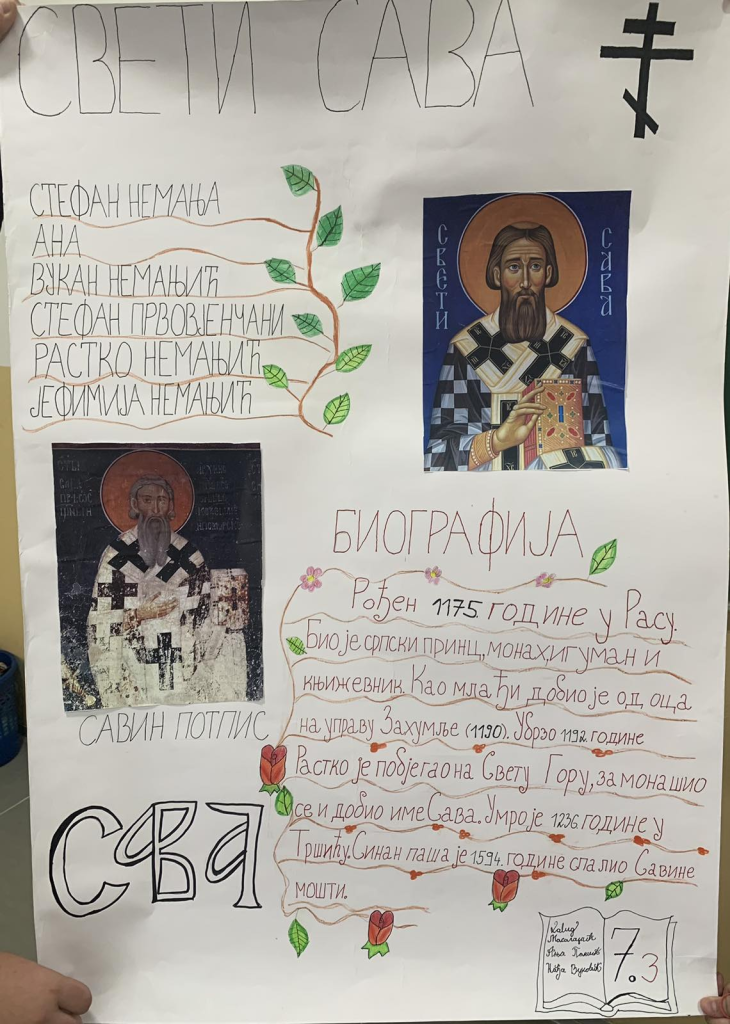 СВЕТИ САВА
СТЕФАН НЕМАЊА
АНА
ВУКАН НЕМАЊИЋ
СТЕФАН ПРВОВЈЕНЧАНИ
РАСТКО НЕМАЊИЋ
ЈЕФИМИЈА НЕМАЊИЋ
СВЕТИ
САВА
САВИН ПОТПИС
САВА
БИОГРАФИЈА
Рођен 1175. године у Расу.
Био је српски принц, монах, игуман и
књижевник. Као млађи добио је од оца
на управу Захумље (1190). Убрзо 1192. године
Растко је побјегао на Свету Гору, замонашио
се и добио име Сава. Умро је 1236. године у
Тршићу. Синан паша је 1594. године спалио Савине
мошти.
7.3